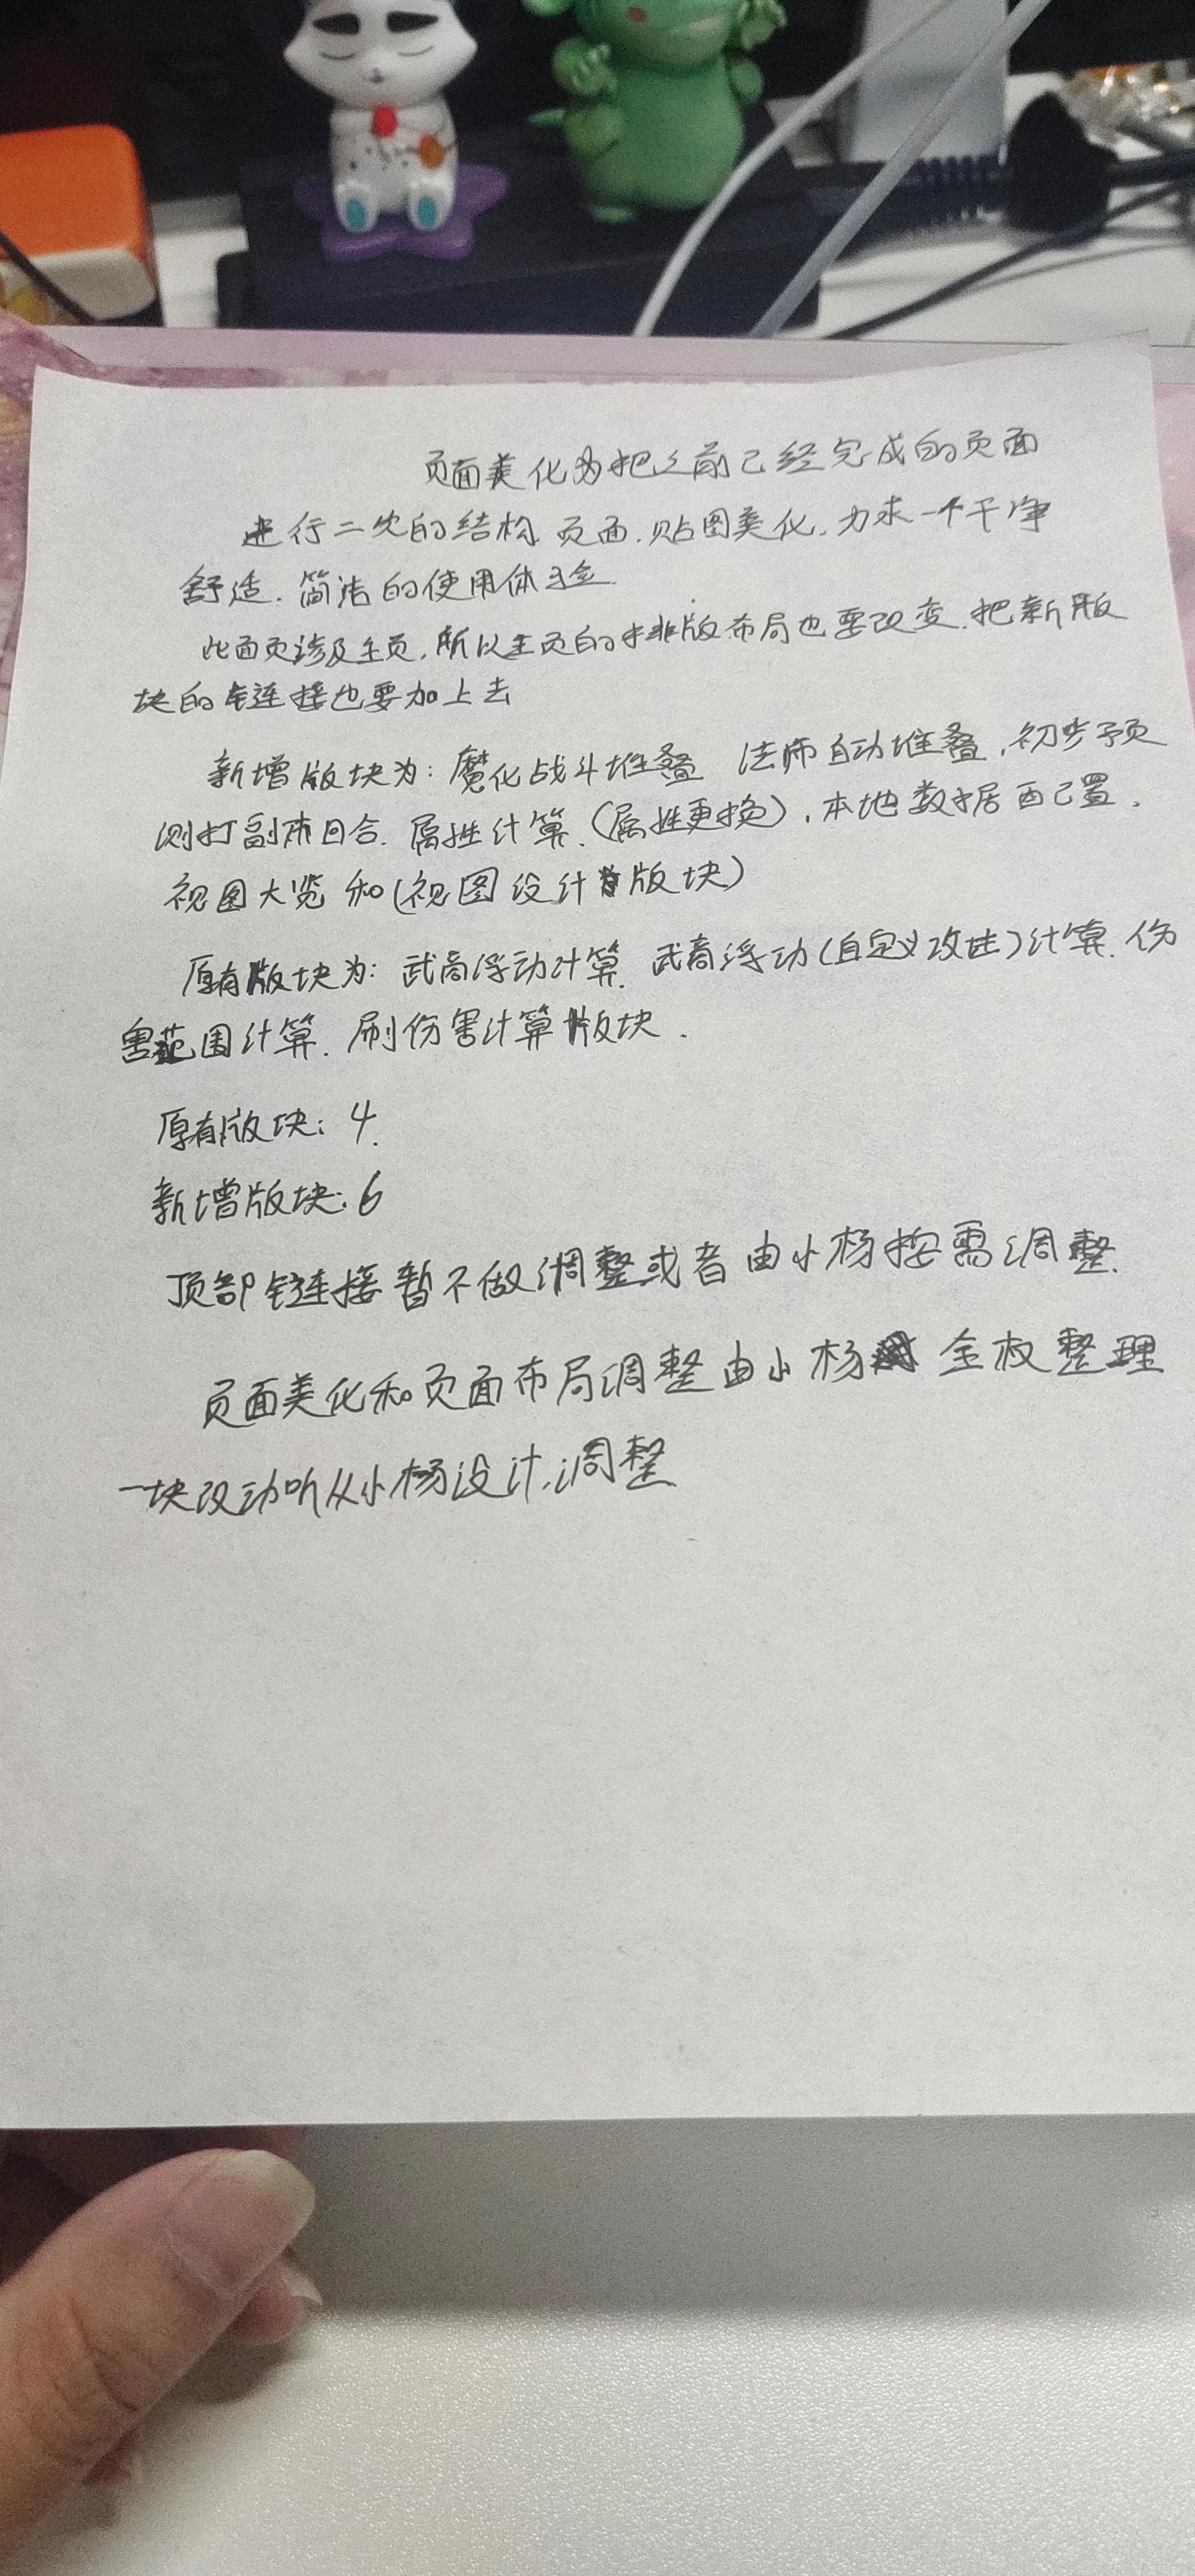 页面美化为把之前已经完成的页面
进行二次的结构.页面.贴图美化.力求一个干净
舒适.简洁的使用体验.
此面页涉及主页,所以主页的排版布局也要改变.把新版
块的链连接也要加上去
新增版块为:魔化战斗堆叠 法师自动堆叠,初步预
测打副本回合.属性计算.(属性更换),本地数据配置.
视图大览和(视图设计版块)
原有版块为:武高浮动计算.武高浮动(自定义改进)计算.伤
害范围计算.刷伤害计算版块.
原有版块:4.
新增版块:6
顶部链连接暂不做调整或者由小杨按需调整.
页面美化和页面布局调整由小杨 全权整理
一块改动听从小杨设计.调整